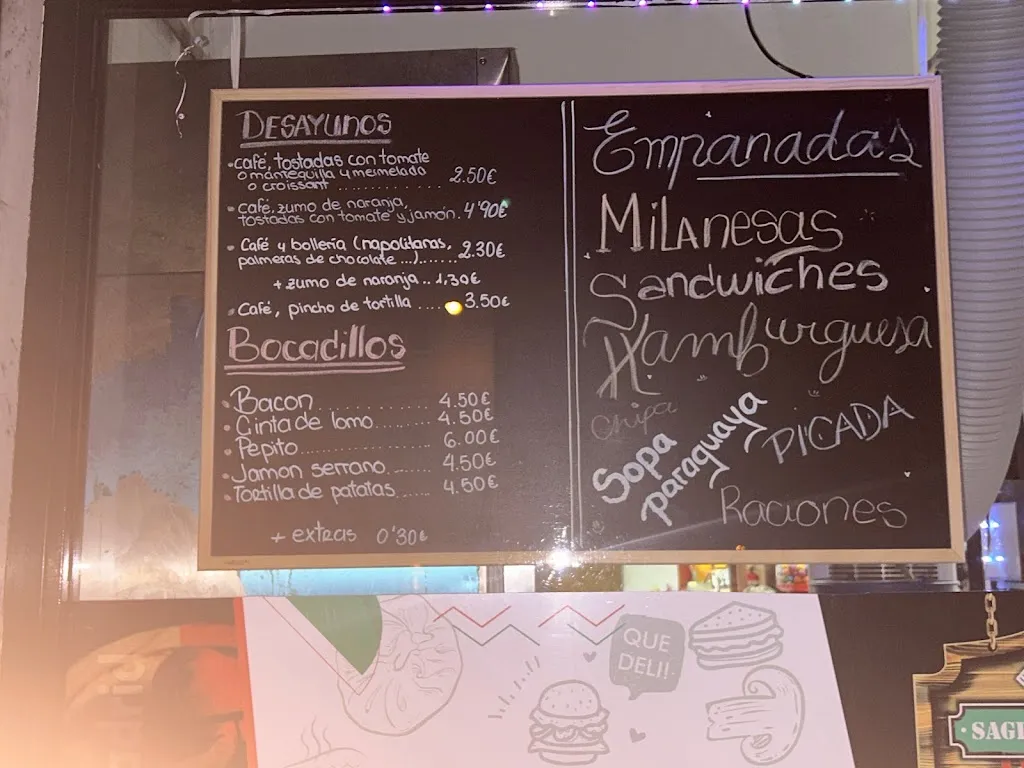 DESAYUNOS
•café, tostadas con tomate
o mantequilla y meimelado
o croissant .............. 2.50€
•café, zumo de naranja,
tostadas con tomate y jamón. 4'90€
•Café y bollería (napolitanas,
palmeras de chocolate ...)...... 2.30€
+ zumo de naranja .. 1,30€
•Café, pincho de tortilla ...... 3.50€
Bocadillos
•Bacon .............. 4.50€
•Cinta de lomo .......... 4.50€
•Pepito .............. 6.00€
•Jamon serrano ...... 4.50€
•Tortilla de patatas ...... 4.50€
+ extras 0'30€
Empanadas
Milanesas
Sandwiches
Hamburguesa
Chipa
Sopa
paraguaya
PICADA
Raciones
QUE
DELI!